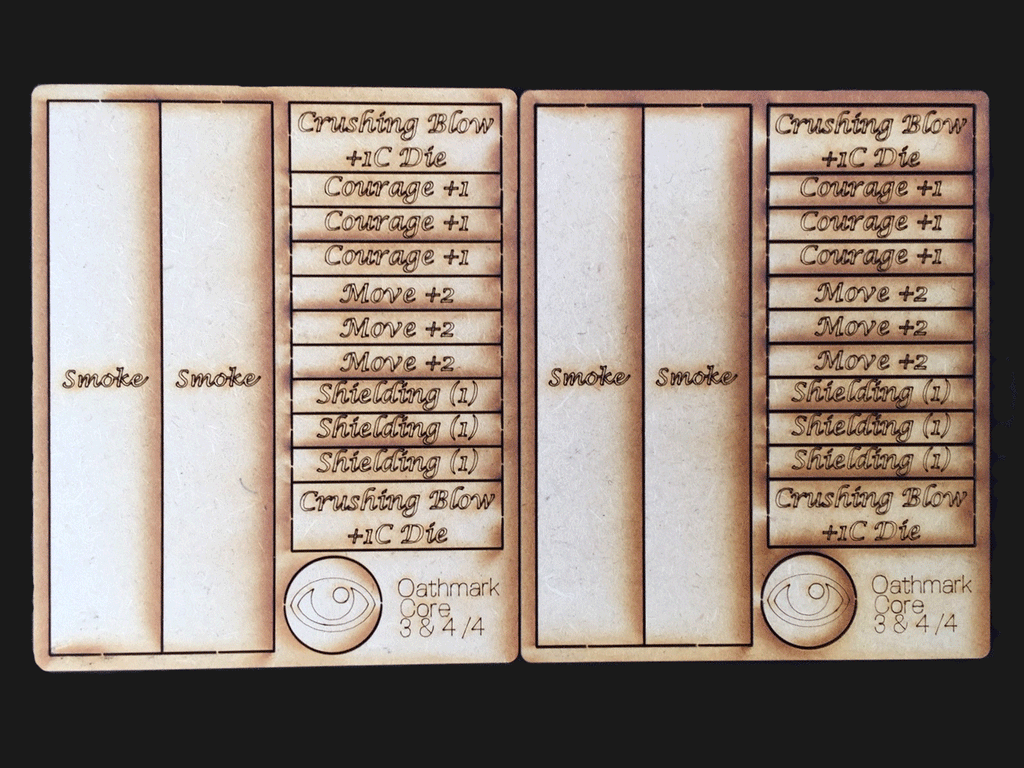 Smoke
Smoke
Crushing Blow
+1C Die
Courage +1
Courage +1
Courage +1
Move +2
Move +2
Move +2
Shielding (1)
Shielding (1)
Shielding (1)
Crushing Blow
+1C Die
Oathmark
Core
3 & 4 /4
Smoke
Smoke
Crushing Blow
+1C Die
Courage +1
Courage +1
Courage +1
Move +2
Move +2
Move +2
Shielding (1)
Shielding (1)
Shielding (1)
Crushing Blow
+1C Die
Oathmark
Core
3 & 4 /4